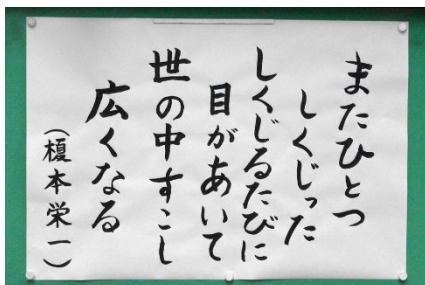 またひとつ
しくじった
しくじるたびに
目があいて
世の中すこし
広くなる
（榎本栄一）